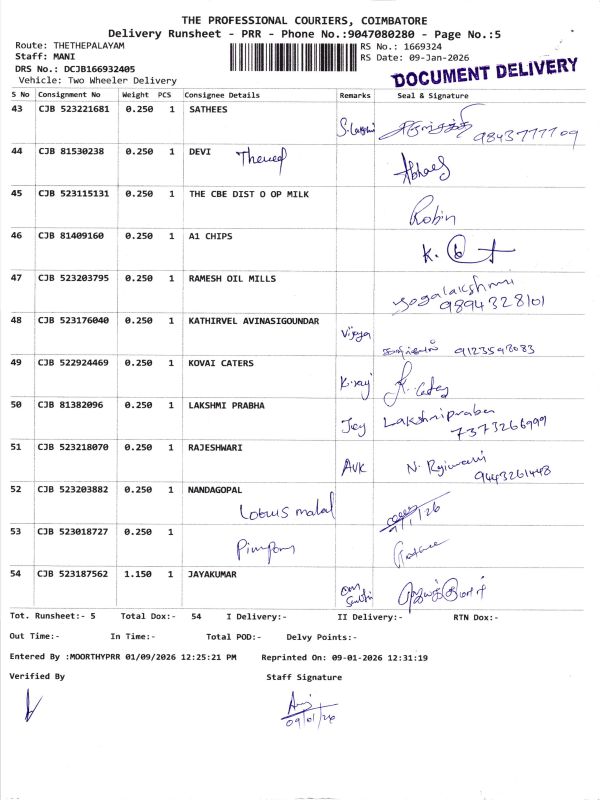 THE PROFESSIONAL COURIERS, COIMBATORE
Delivery Runsheet - PRR - Phone No.:9047080280 - Page No.:5
Route: THETHEPALAYAM RS No.: 1669324
Staff: MANI RS Date: 09-Jan-2026
DRS No.: DCJB166932405
Vehicle: Two Wheeler Delivery
DOCUMENT DELIVERY
S No Consignment No Weight PCS Consignee Details Remarks Seal & Signature
43 CJB 523221681 0.250 1 SATHEES
9843777709
44 CJB 81530238 0.250 1 DEVI
45 CJB 523115131 0.250 1 THE CBE DIST O OP MILK
Robin
46 CJB 81409160 0.250 1 A1 CHIPS
K.
47 CJB 523203795 0.250 1 RAMESH OIL MILLS
yogalakshmi
9894328101
48 CJB 523176040 0.250 1 KATHIRVEL AVINASIGOUNDAR
Vijaya
9123593083
49 CJB 522924469 0.250 1 KOVAI CATERS
K.raj
50 CJB 81382096 0.250 1 LAKSHMI PRABHA
Joy Lakshmipraba
7373266999
51 CJB 523218070 0.250 1 RAJESHWARI
AVK N. Rajiwari
9443261448
52 CJB 523203882 0.250 1 NANDAGOPAL
Lotus mahal
9/1/26
53 CJB 523018727 0.250 1
54 CJB 523187562 1.150 1 JAYAKUMAR
Tot. Runsheet:- 5 Total Dox:- 54 I Delivery:- II Delivery:- RTN Dox:-
Out Time:- In Time:- Total POD:- Delvy Points:-
Entered By :MOORTHYPRR 01/09/2026 12:25:21 PM Reprinted On: 09-01-2026 12:31:19
Verified By Staff Signature
09/01/26